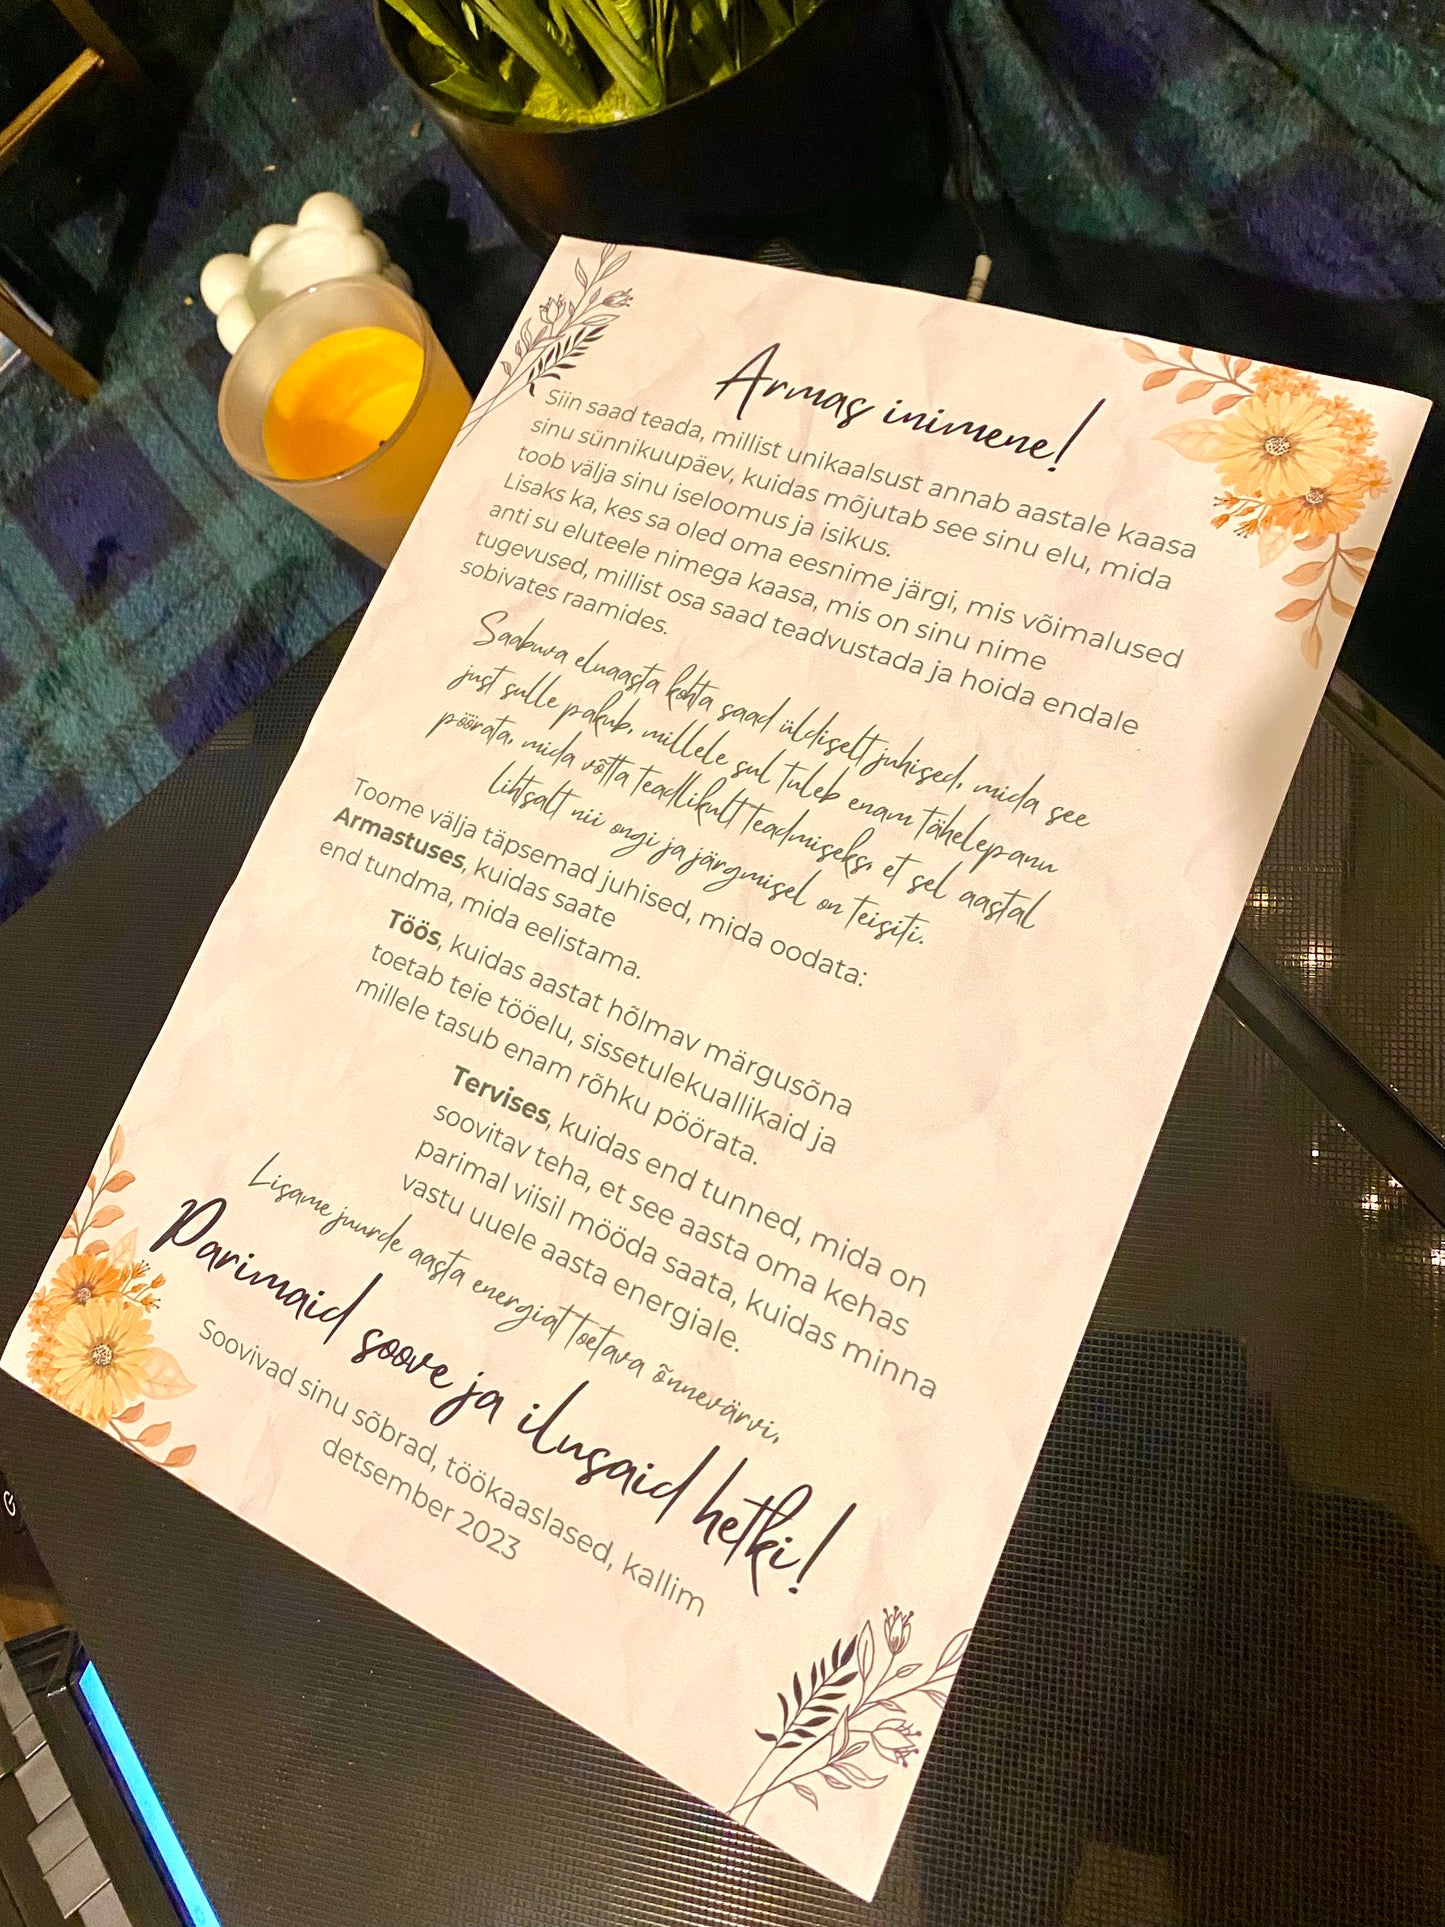 Armas inimene!
Siin saad teada, millist unikaalsust annab aastale kaasa
sinu sünnikuupäev, kuidas mõjutab see sinu elu, mida
toob välja sinu iseloomus ja isikus.
Lisaks ka, kes sa oled oma eesnime järgi, mis võimalused
anti su eluteele nimega kaasa, mis on sinu nime
tugevused, millist osa saad teadvustada ja hoida endale
sobivates raamides.
Saabuva eluaasta kohta saad üldiselt juhised, mida see
just sulle pakub, millele sul tuleb enam tähelepanu
pöörata, mida võtta teadlikult teadmiseks, et sel aastal
lihtsalt nii ongi ja järgmisel on teisiti.
Toome välja täpsemad juhised, mida oodata:
Armastuses, kuidas saate
end tundma, mida eelistama.
Töös, kuidas aastat hõlmav märgusõna
toetab teie tööelu, sissetulekuallikaid ja
millele tasub enam rõhku pöörata.
Tervises, kuidas end tunned, mida on
soovitav teha, et see aasta oma kehas
parimal viisil mööda saata, kuidas minna
vastu uuele aasta energiale.
Lisame juurde aasta energiat toetava õnnevärvi,
Parimaid soove ja ilusaid hetki!
Soovivad sinu sõbrad, töökaaslased, kallim
detsember 2023